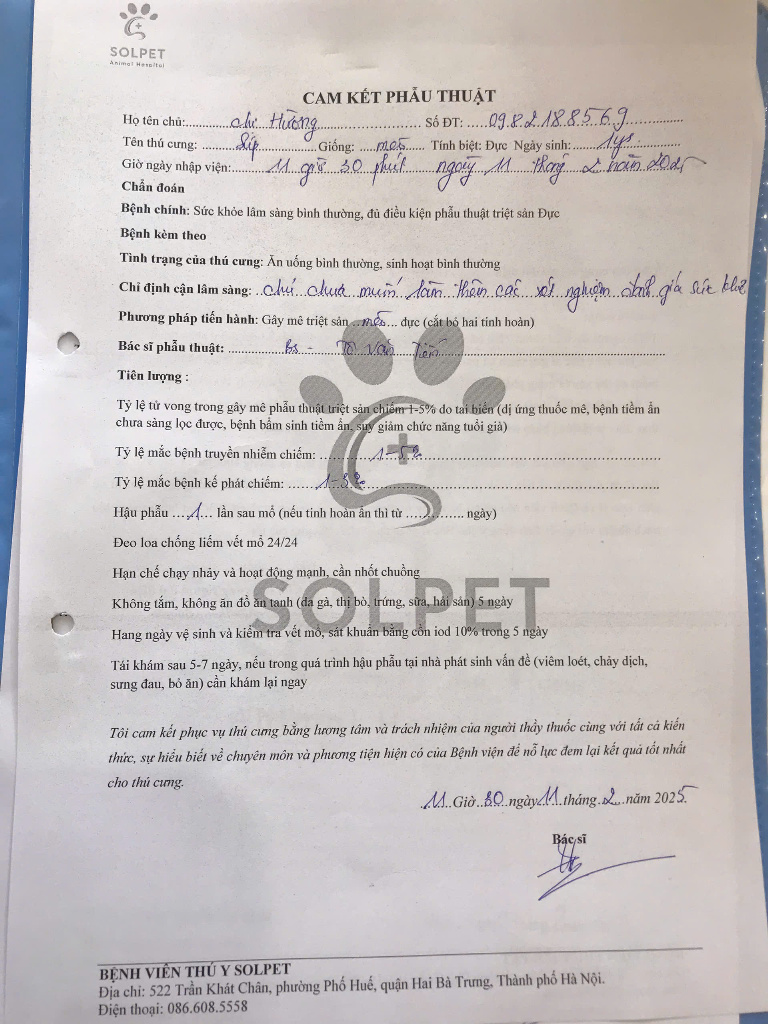 SOLPET
Animal Hospital
CAM KẾT PHẪU THUẬT
Họ tên chủ: chị Hường Số ĐT: 0982188569
Tên thú cưng: Síp Giống: mèo Tính biệt: Đực Ngày sinh: 1y
Giờ ngày nhập viện: 11 giờ 30 phút ngày 11 tháng 2 năm 2025
Chẩn đoán
Bệnh chính: Sức khỏe lâm sàng bình thường, đủ điều kiện phẫu thuật triệt sản Đực
Bệnh kèm theo
Tình trạng của thú cưng: Ăn uống bình thường, sinh hoạt bình thường
Chỉ định cận lâm sàng: chủ chưa muốn làm thêm các xét nghiệm đánh giá sức khỏe
Phương pháp tiến hành: Gây mê triệt sản mèo đực (cắt bỏ hai tinh hoàn)
Bác sĩ phẫu thuật: Bs - Tô Văn Tiến
Tiên lượng :
Tỷ lệ tử vong trong gây mê phẫu thuật triệt sản chiếm 1-5% do tai biến (dị ứng thuốc mê, bệnh tiềm ẩn
chưa sàng lọc được, bệnh bẩm sinh tiềm ẩn, suy giảm chức năng tuổi già)
Tỷ lệ mắc bệnh truyền nhiễm chiếm: 1-5%
Tỷ lệ mắc bệnh kế phát chiếm: 1-3%
Hậu phẫu 1 lần sau mổ (nếu tinh hoàn ẩn thì từ ngày)
Đeo loa chống liếm vết mổ 24/24
Hạn chế chạy nhảy và hoạt động mạnh, cần nhốt chuồng
Không tắm, không ăn đồ ăn tanh (da gà, thịt bò, trứng, sữa, hải sản) 5 ngày
Hang ngày vệ sinh và kiểm tra vết mổ, sát khuẩn bằng cồn iod 10% trong 5 ngày
Tái khám sau 5-7 ngày, nếu trong quá trình hậu phẫu tại nhà phát sinh vấn đề (viêm loét, chảy dịch,
sưng đau, bỏ ăn) cần khám lại ngay
SOLPET
Tôi cam kết phục vụ thú cưng bằng lương tâm và trách nhiệm của người thầy thuốc cùng với tất cả kiến
thức, sự hiểu biết về chuyên môn và phương tiện hiện có của Bệnh viện để nỗ lực đem lại kết quả tốt nhất
cho thú cưng.
11 Giờ 30 ngày 11 tháng 2 năm 2025
Bác sĩ
BỆNH VIỆN THÚ Y SOLPET
Địa chỉ: 522 Trần Khát Chân, phường Phố Huế, quận Hai Bà Trưng, Thành phố Hà Nội.
Điện thoại: 086.608.5558